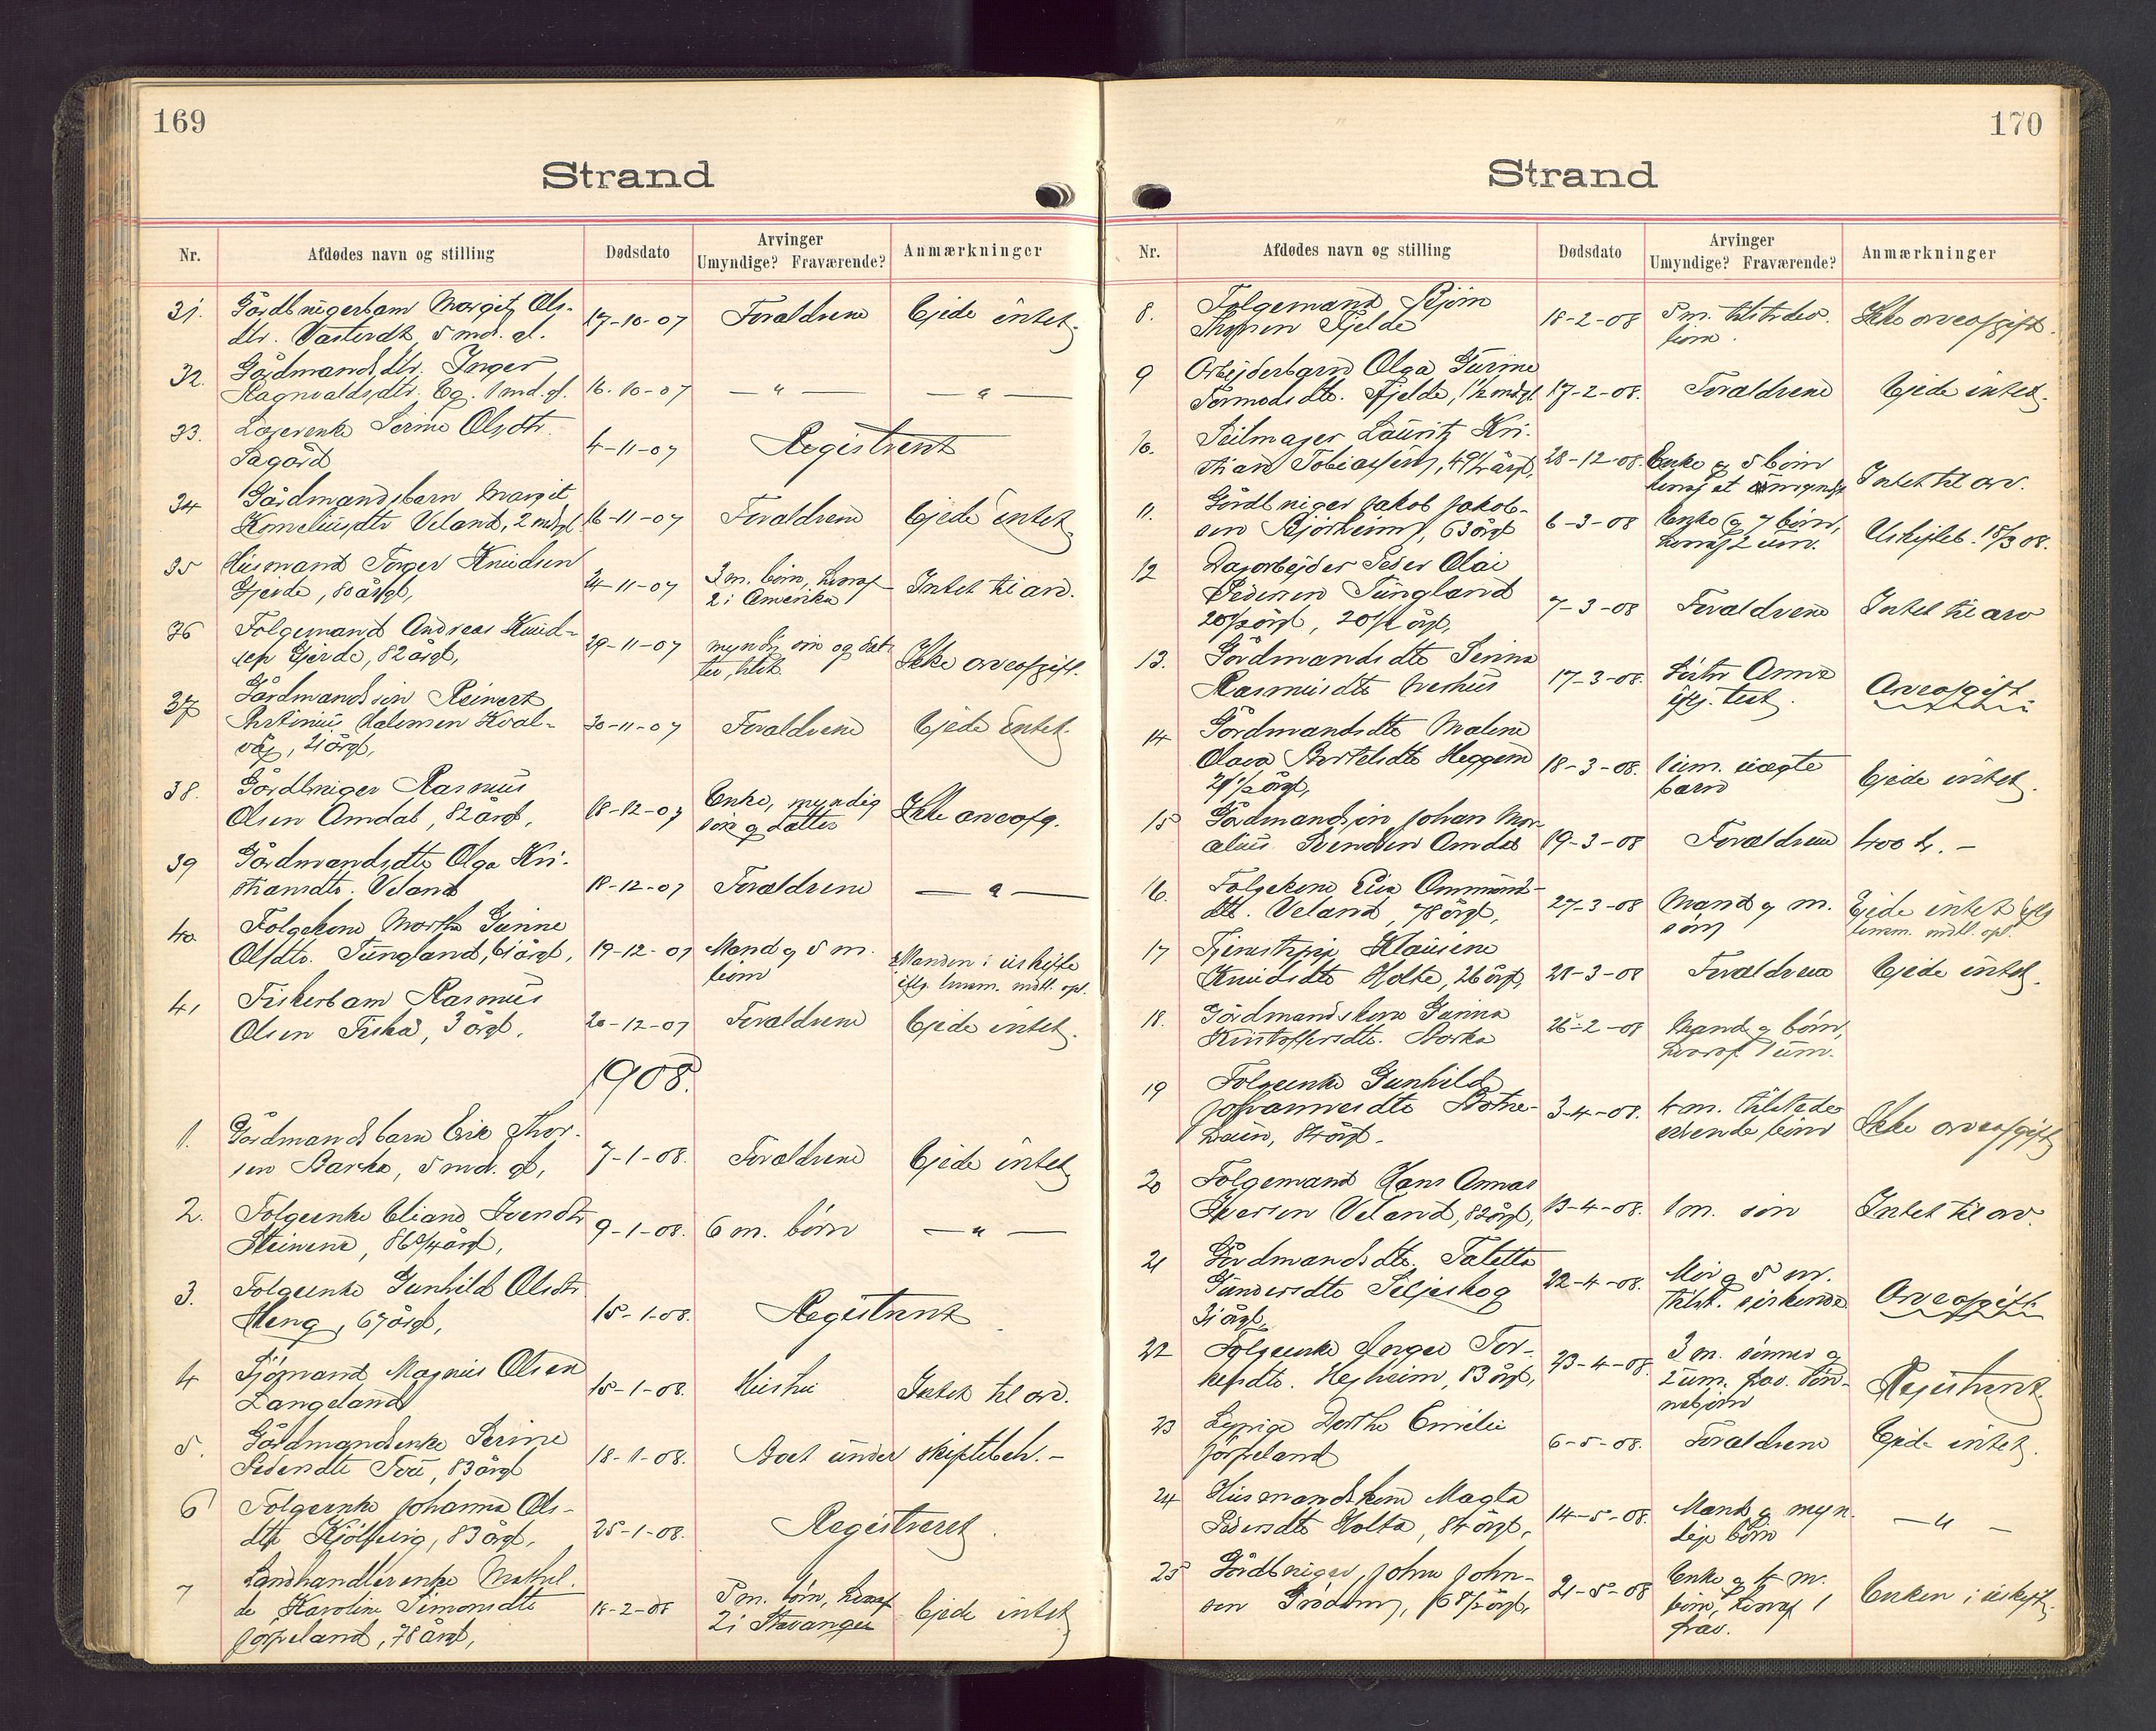 169
Strand
Nr.
Afdødes navn og stilling
Dødsdato
Arvinger
Umyndige? Fraværende?
Anmærkninger
31. Gårdbrugerbarn Margit Ols-
dtr. 5 md. gl. 17-10-07 Forældrene Ejede intet.
32. Gårdmandsdtr. Inger
Ragnvaldsdtr. Eg. 1 md. gl. 16-10-07 — " — — " —
33. Serine Olsdtr.
Sagård 4-11-07 Registrert
34 Gårdmandsbarn Margit
Korneliusdtr Veland, 2 mdgl. 16-11-07 Forældrene Ejede intet
35 Husmand Torger Knudsen
Gjerde, 80 årgl, 24-11-07 3 m. børn, hvoraf
2 i Amerika Intet til arv.
36 Folgemand Andreas Knud-
sen Gjerde, 82 årgl, 29-11-07 myndig søn og dat-
ter, tilst. Ikke arveafgift.
37 Gårdmandssøn Reinert
Kval-
våg, 21 årgl, 30-11-07 Forældrene Ejede intet.
38. Gårdbruger Rasmus
Olsen Amdal, 82 årgl, 18-12-07 Enke, myndig
søn og datter Ikke arveafg.
39 Gårdmandsdtr Olga Kri-
stiansdtr. Veland 18-12-07 Forældrene — " —
40 Folgekone Martha Gurine
Olsdtr. Tungland, 61 årgl, 19-12-07 Mand og 5 m.
børn Manden i uskifte
iflg. lensm. mdtl. opl.
41 Fiskerbarn Rasmus
Olsen Fiskå, 3 årgl. 20-12-07 Forældrene Ejede intet.
1908.
1. Gårdmandsbarn Erik Thor-
sen Barka, 5 md. gl, 7-1-08. Forældrene Ejede intet
2. Folgeenke Eliane Svendsdtr
86 3/4 årgl, 9-1-08. 6 m. børn — " —
3. Folgeenke Gunhild Olsdtr
Meng, 67 årgl, 15-1-08. Registrert
4 Sjømand Magnus Olsen
Langeland 15-1-08. Hustru Intet til arv.
5. Gårdmandsenke Serine
Pedersdtr Tou, 83 årgl 18-1-08. Boet under skiftebeh. —
6 Folgeenke Johanna Ols-
dtr 83 årgl, 25-1-08. Registreret
7 Landhandlerenke Mathil-
de Karoline Simonsdtr
Jørpeland, 78 årgl, 18-2-08 5 m. børn, hvoraf
2 i Stavanger Ejede intet
170
Strand
Nr.
Afdødes navn og stilling
Dødsdato
Arvinger
Umyndige? Fraværende?
Anmærkninger
8. Folgemand Bjørn
Fjelde 18-2-08 5 m. tilstedev.
børn. Ikke arveafgift.
9 Arbejderbarn Olga Gurine
Tormodsdtr. Fjelde, 1 1/2 mdgl. 17-2-08. Forældrene Ejede intet.
10. Seilmager Lauritz Kri-
stian Tobiassen, 49 1/2 årgl, 28-12-08. Enke og 5 børn
hvoraf et umyndig Intet til arv.
11. Gårdbruger Jakob Jakob-
sen Bjørheim, 63 årgl 6-3-08 Enke og 7 børn,
hvoraf 2 um. Uskiftet. 18/3 08.
12 Dagarbejder Peder Olai
Pedersen Tungland
20 1/2 årgl, 20 1/2 årgl, 7-3-08 Forældrene Intet til arv
13. Gårdmandsdtr Serina
Rasmusdtr 17-3-08. Søster Anna
iflg. test. Arveafgift
14 Gårdmandsdtr Malene
Olava Bertelsdtr Heggem
21 1/2 årgl, 18-3-08. 1 um. uægte
barn Ejede intet.
15 Gårdmandssøn Johan Mar-
selius Svendsen Amdal 19-3-08 Forældrene 400 kr. —
16. Folgekone Eli Ommund-
dtr. Veland, 78 årgl, 27-3-08 Mand og m.
søn Ejede intet iflg
lensm. mdtl. opl.
17 Tjenestepige Klausine
Knudsdtr Holta, 26 årgl, 28-3-08 Forældrene Ejede intet.
18. Gårdmandskone Gurina
Kristoffersdtr. Barka 26-2-08 Mand og børn,
hvoraf 1 um.
19 Folgeenke Gunhild
Johannesdtr Botne-
haug, 84 årgl. 3-4-08. 4 m. tilstede-
værende børn Ikke arveafgift
20 Folgemand Hans Annas
Iversen Veland, 82 årgl, 13-4-08. 1 m. søn Intet til arv.
21 Gårdmandsdtr. Taletta
Gundersdtr Seljeskog
31 årgl, 22-4-08. Mor og 5 m.
tilst. søskende Arveafgift
22 Folgeenke Inger Tor-
kelsdtr. Hejheim, 83 årgl, 23-4-08. 3 m. sønner og
2 um. frav. søn-
nebørn Registrert.
23 Dorthe Emilie
Jørpeland 6-5-08. Forældrene Ejede intet.
24 Husmandskone Magla
Pedersdtr Holta, 84 årgl, 14-5-08. Mand og myn-
dige børn — " —
25 Gårdbruger John John-
sen Grødem, 68 1/2 årgl, 21-5-08 Enke og 4 m.
børn, hvoraf 1
frav. Enken i uskifte.